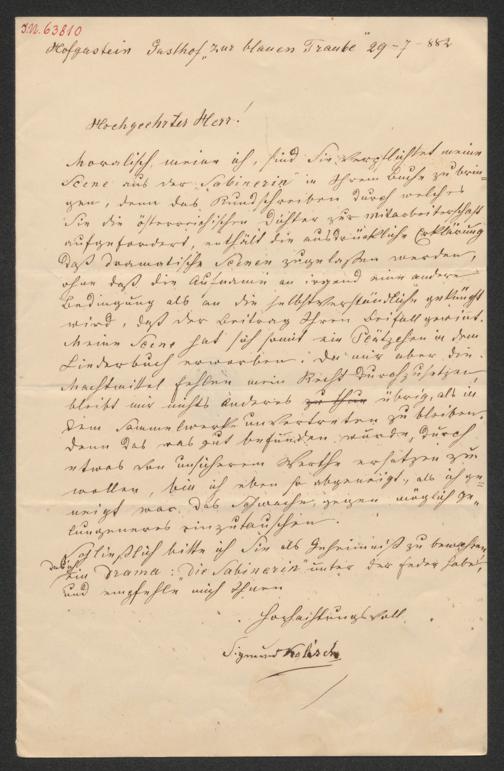 I.N. 63810
Hofgastein Gasthof „zur blauen Traube“ 29-7-882
Hochgeehrter Herr!
Moralisch, meine ich, sind Sie verpflichtet meine
Scene aus der „Sabinerin“ in Ihrem Buche zu brin-
gen, denn das Rundschreiben durch welches
Sie die österreichischen Dichter zur Mitarbeiterschaft
aufgefordert, enthält die ausdrückliche Erklärung
daß dramatische Scenen zugelassen werden,
ohne daß die Aufnahme an irgend eine andere
Bedingung als an die selbstverständliche geknüpft
wird, daß der Beitrag Ihren Beifall gewinnt.
Meine Scene hat sich somit ein Plätzchen in dem
Liederbuch erworben. Da mir aber die
Machtmittel fehlen mein Recht durchzusetzen,
bleibt mir nichts anderes zu thun übrig, als in
dem Sammelwerke unvertreten zu bleiben.
Denn das was gut befunden wurde, durch
etwas von unsicherem Werthe ersetzen zu
wollen, bin ich eben so abgeneigt, als ich ge-
neigt war, das Schwache, gegen möglich ge-
lungeneres einzutauschen.
Schließlich bitte ich Sie als Geheimniß zu bewahren,
daß ich ein Drama: „Die Sabinerin“ unter der Feder habe,
und empfehle mich Ihnen
Hochachtungsvoll
Sigmund Kolisch